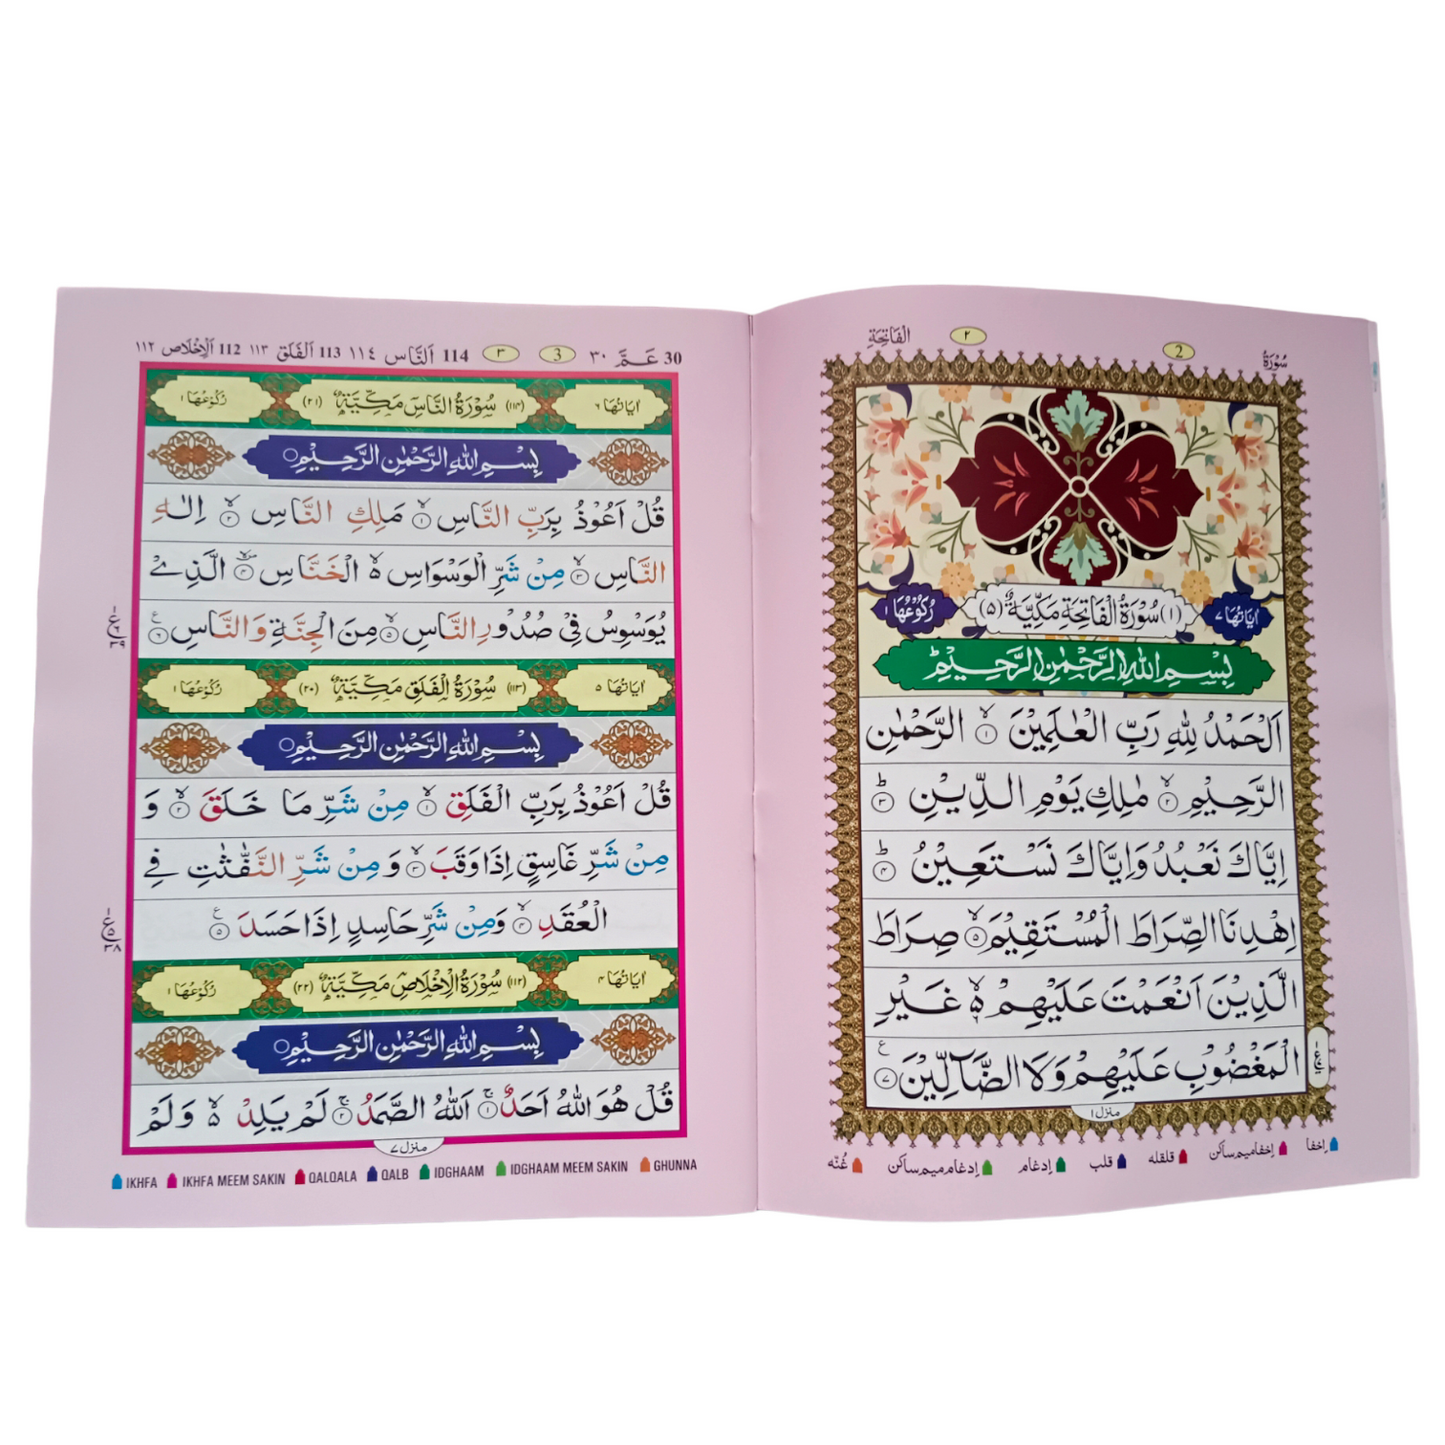 سُوْرَةُ 2 ٢ اَلْفَاتِحَةِ
اٰيَاتُهَا ٧ (١) سُوْرَةُ الْفَاتِحَةِ مَكِّيَّةٌ (٥) رُكُوْعُهَا ١
بِسْمِ اللّٰهِ الرَّحْمٰنِ الرَّحِيْمِ ؕ
اَلْحَمْدُ لِلّٰهِ رَبِّ الْعٰلَمِيْنَ ۙ ١ الرَّحْمٰنِ
الرَّحِيْمِ ۙ ٢ مٰلِكِ يَوْمِ الدِّيْنِ ؕ ٣
اِيَّاكَ نَعْبُدُ وَاِيَّاكَ نَسْتَعِيْنُ ؕ ٤
اِهْدِنَا الصِّرَاطَ الْمُسْتَقِيْمَ ۙ ٥ صِرَاطَ
الَّذِيْنَ اَنْعَمْتَ عَلَيْهِمْ ۙ۬ ٥ غَيْرِ
الْمَغْضُوْبِ عَلَيْهِمْ وَلَا الضَّآلِّيْنَ ٧ ع
منزل ١
اِخفا اِخفا ميم ساكن قلقله قلب اِدغام اِدغام ميم ساكن غُنّه
30 عَـمَّ ٣٠ 3 ٣ 114 اَلنَّاس ١١٤ 113 اَلْفَلَق ١١٣ 112 اَلْاِخْلَاص ١١٢
اٰيَاتُهَا ٦ (١١٤) سُوْرَةُ النَّاسِ مَكِّيَّةٌ (٢١) رُكُوْعُهَا ١
بِسْمِ اللّٰهِ الرَّحْمٰنِ الرَّحِيْمِ
قُلْ اَعُوْذُ بِرَبِّ النَّاسِ ۙ ١ مَلِكِ النَّاسِ ۙ ٢ اِلٰهِ
النَّاسِ ۙ ٣ مِنْ شَرِّ الْوَسْوَاسِ ۙ٥ الْخَنَّاسِ ٤ الَّذِيْ
يُوَسْوِسُ فِيْ صُدُوْرِ النَّاسِ ۙ ٥ مِنَ الْجِنَّةِ وَالنَّاسِ ٦ ع
اٰيَاتُهَا ٥ (١١٣) سُوْرَةُ الْفَلَقِ مَكِّيَّةٌ (٢٠) رُكُوْعُهَا ١
بِسْمِ اللّٰهِ الرَّحْمٰنِ الرَّحِيْمِ
قُلْ اَعُوْذُ بِرَبِّ الْفَلَقِ ۙ ١ مِنْ شَرِّ مَا خَلَقَ ۙ ٢ وَ
مِنْ شَرِّ غَاسِقٍ اِذَا وَقَبَ ۙ ٣ وَ مِنْ شَرِّ النَّفّٰثٰتِ فِي
الْعُقَدِ ۙ ٤ وَمِنْ شَرِّ حَاسِدٍ اِذَا حَسَدَ ٥ ع
اٰيَاتُهَا ٤ (١١٢) سُوْرَةُ الْاِخْلَاصِ مَكِّيَّةٌ (٢٢) رُكُوْعُهَا ١
بِسْمِ اللّٰهِ الرَّحْمٰنِ الرَّحِيْمِ
قُلْ هُوَ اللّٰهُ اَحَدٌ ۚ ١ اَللّٰهُ الصَّمَدُ ۚ ٢ لَمْ يَلِدْ ۙ٥ وَلَمْ
منزل ٧
IKHFA IKHFA MEEM SAKIN QALQALA QALB IDGHAAM IDGHAAM MEEM SAKIN GHUNNA